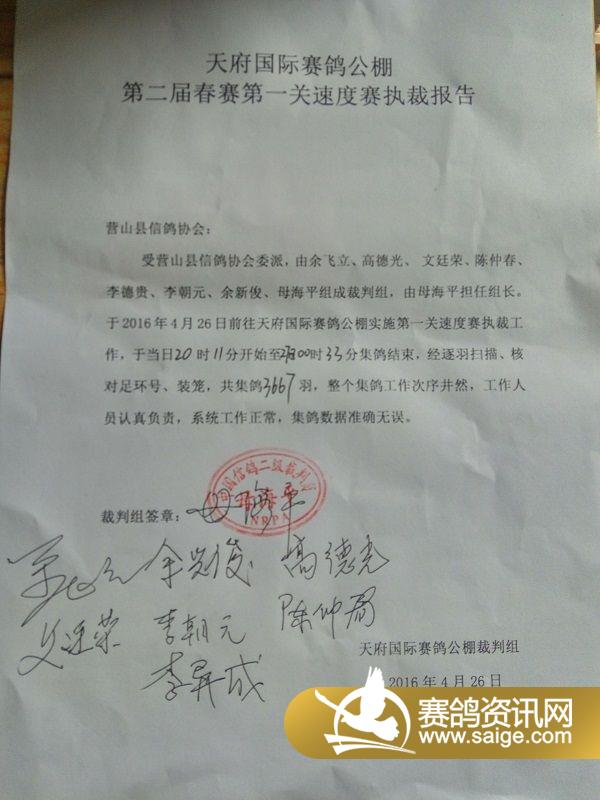 天府国际赛鸽公棚
第二届春赛第一关速度赛执裁报告
营山县信鸽协会：
受营山县信鸽协会委派，由余飞立、高德光、 文廷荣、陈仲春、
李德贵、李朝元、余新俊、母海平组成裁判组，由母海平担任组长。
于2016年4月26日前往天府国际赛鸽公棚实施第一关速度赛执裁工
作，于当日20时11分开始至27日00时33分集鸽结束，经逐羽扫描、核
对足环号、装笼，共集鸽3667羽，整个集鸽工作次序井然，工作人
员认真负责，系统工作正常，集鸽数据准确无误。
中国信鸽二级裁判员
NRPA
裁判组签章：母海平
高德光
文廷荣 李朝元
李昇成
天府国际赛鸽公棚裁判组
2016年4月26日
赛鸽资讯网
www.saige.com